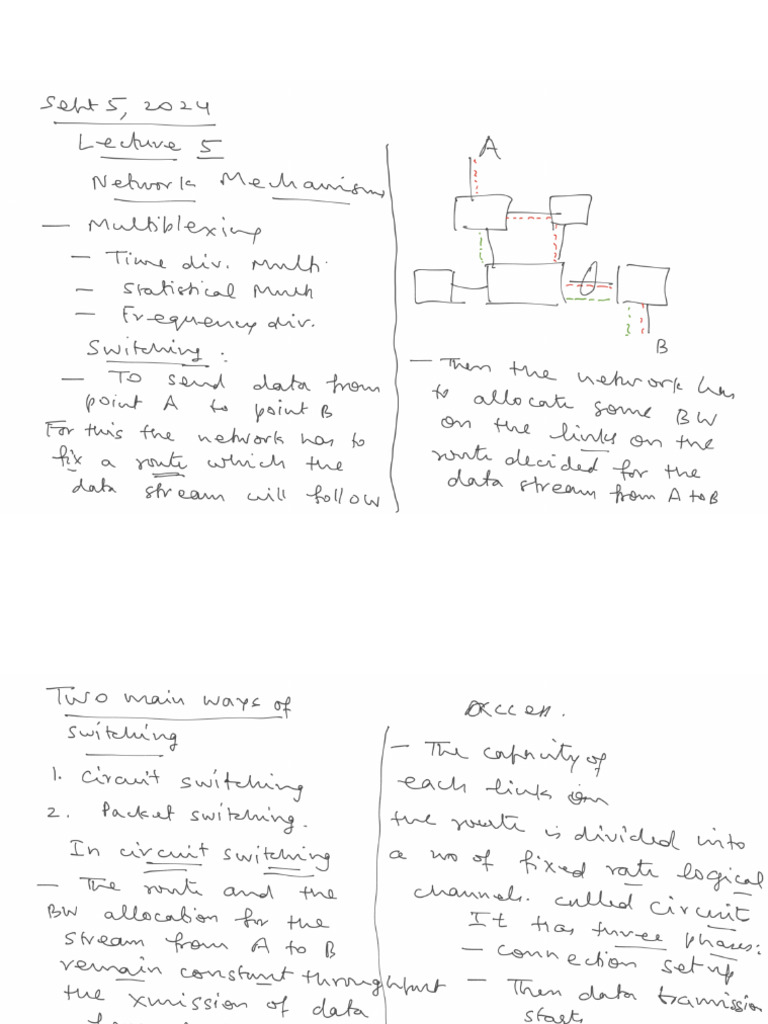 Sept 5, 2024
Lecture 5
Network Mechanisms
— Multiplexing
— Time div. Multi.
— Statistical Mult
— Frequency div.
Switching:
— To send data from
point A to point B
For this the network has to
fix a route which the
data stream will follow
A
B
— Then the network has
to allocate some BW
on the links on the
route decided for the
data stream from A to B
Two main ways of
switching
1. Circuit switching
2. Packet switching.
In circuit switching
— The route and the
BW allocation for the
stream from A to B
remain constant throughput
the xmission of data
— The capacity of
each link on
the route is divided into
a no of fixed rate logical
channels. called circuit
It has three phases:
— connection set up
— Then data tramission
starts